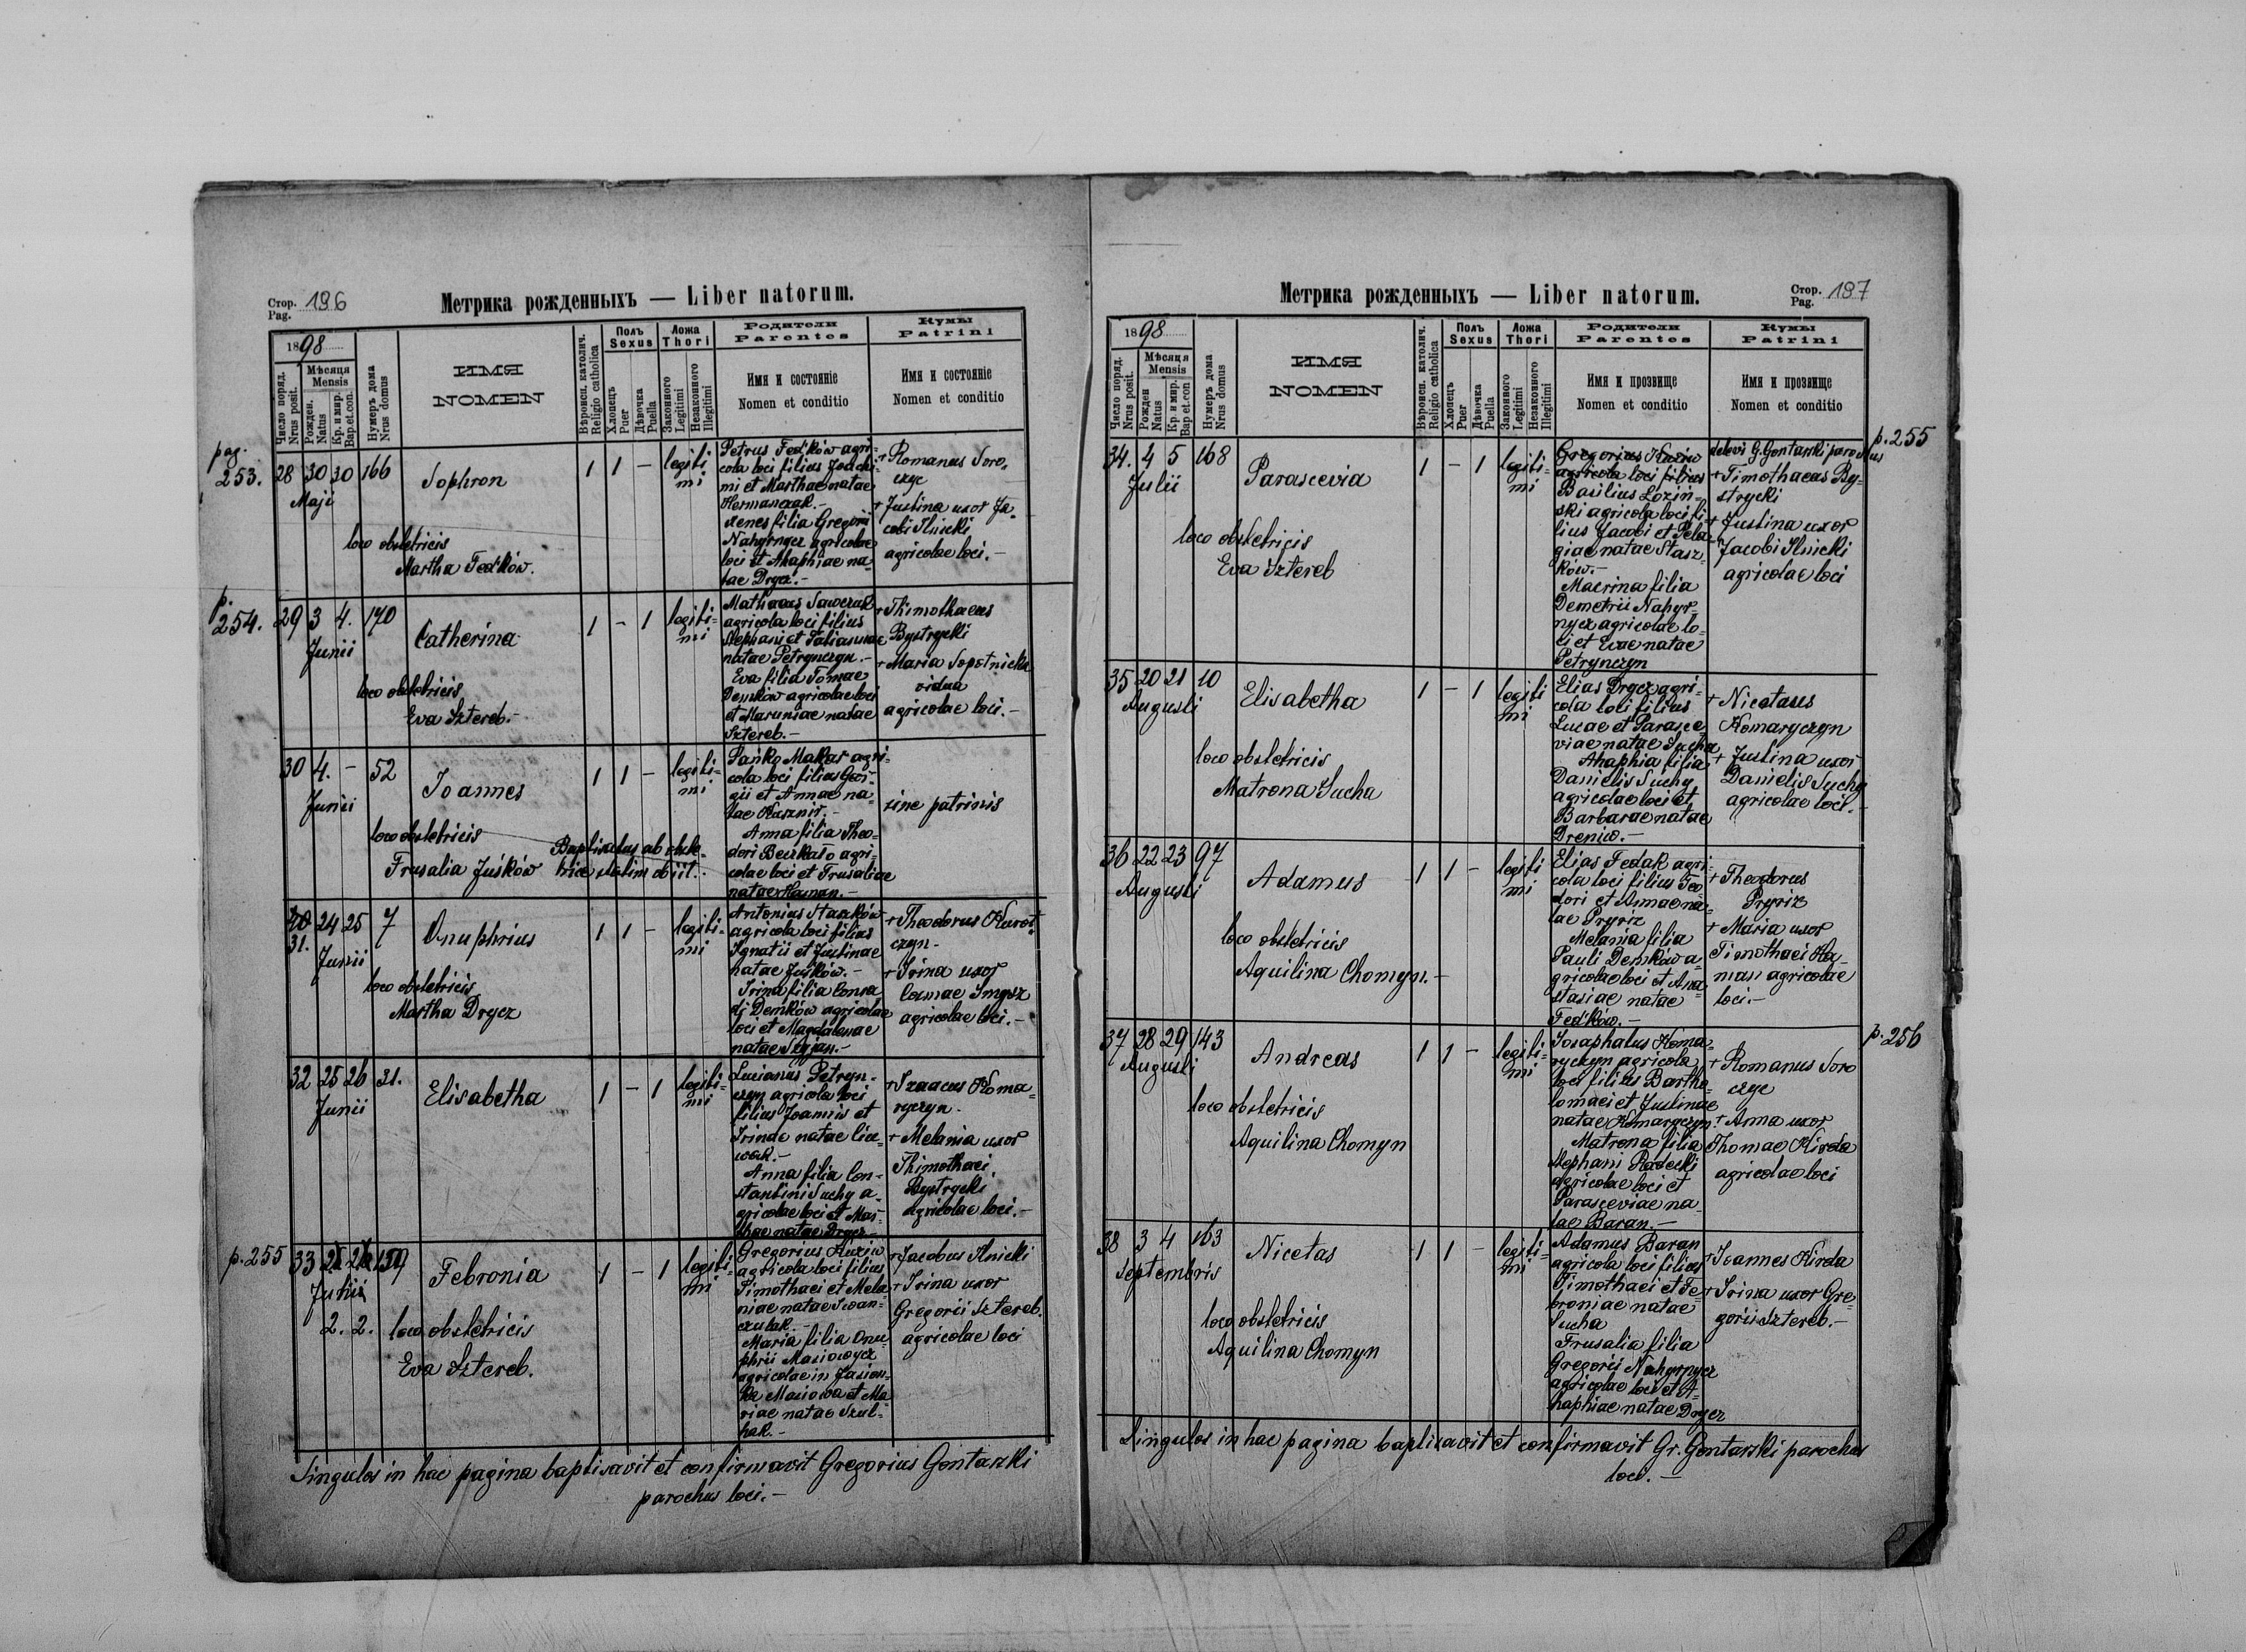 Стор. 196
Pag.
Метрика рожденныхъ — Liber natorum.
1898
Число поряд.
Nrus posit.
Мѣсяця
Mensis
Рожден.
Natus
Кр. и мир.
Bap.et.con.
Нумеръ дома
Nrus domus
ИМЯ
NOMEN
Вѣроисп. католич.
Religio catholica
Полъ
Sexus
Хлопецъ
Puer
Дѣвочка
Puella
Ложа
Thori
Законного
Legitimi
Незаконного
Illegitimi
Родители
Parentes
Имя и состояніе
Nomen et conditio
Кумы
Patrini
Имя и состояніе
Nomen et conditio
pag.
253.
28 30 30 166
Maji
Sophron
loco obstetricis
Martha Fedków.
1 1 —
legiti
mi
Petrus Fedków agri-
cola loci filius Joachi-
mi et Marthae natae
Hermanczak.-
Xenes filia Gregorii
Nahyrnycz agricolae
loci et Ahaphiae na-
tae Drycz.-
+ Romanus Soro-
czyc
+ Justina uxor Ja-
cobi Ilnicki
agricolae loci.-
p.
254.
29 3 4. 170
Junii
Catherina
loco obstetricis
Eva Sztereb.-
1 - 1
legiti-
mi
Mathaeus Sawczuk
agricola loci filius
Stephani et Tatiannae
natae Petrynczyn.-
Eva filia Tomae
Demków agricolae loci
et Maruniae natae
Sztereb.-
+ Thimothaeus
Bystrycki
+ Maria Sopotnicka
vidua
agricolae loci.-
30 4. - 52
Junii
Joannes
loco obstetricis
Frusalia Juśków
Baptisatus ab obste-
trice statim obiit.-
1 1 -
legiti-
mi
Pańko Makar agri-
cola loci filius Geor-
gii et Annae na-
tae Kusznir.-
Anna filia Theo-
dori Beczkało agri-
colae loci et Frusaliae
natae Haman.-
sine patrinis
31. 24 25 7
Junii
Onuphrius
loco obstetricis
Martha Drycz
1 1 -
legiti-
mi
Antonius Staszków
agricola loci filius
Ignatii et Justinae
natae Juśków.-
Irina filia Conra
di Demków agricolae
loci et Magdalenae
natae Seyjan.-
+ Theodorus Kurot-
czyn-
+ Irina uxor
Cosmae Smysz
agricolae loci.-
32 25 26 31.
Junii
Elisabetha
1 - 1
legiti-
mi
Lucianus Petryn-
czyn agricola loci
filius Joannis et
Irinae natae Ciu-
wak.-
Anna filia Con-
stantini Suchy a-
gricolae loci et Mar-
thae natae Drycz-
+ Isaacus Koma-
ryczyn.
+ Melania uxor
Thimothaei
Bystrycki
agricolae loci.-
p. 255
33 159
Julii
2. 2.
Febronia
loco obstetricis
Eva Sztereb.
1 - 1
legiti-
mi
Gregorius Kuziw
agricola loci filius
Timothaei et Mela-
niae natae Iwan-
czulak.-
Maria filia Onu-
phrii Masiowycz
agricolae in Jasion-
ka Masiowa et Ma
riae natae Szul-
hak.-
+ Jacobus Ilnicki
+ Irina uxor
Gregorii Sztereb.
agricolae loci
Singulos in hac pagina baptisavit et confirmavit Gregorius Gontarski
parochus loci.-
Метрика рожденныхъ — Liber natorum.
Стор. 197
Pag.
1898
Число поряд.
Nrus posit.
Мѣсяця
Mensis
Рожден
Natus
Кр. и мир.
Bap et.con
Нумеръ дома
Nrus domus
ИМЯ
NOMEN
Вѣроисп. католич.
Religio catholica
Полъ
Sexus
Хлопецъ
Puer
Дѣвочка
Puella
Ложа
Thori
Законного
Legitimi
Незаконного
Illegitimi
Родители
Parentes
Имя и прозвище
Nomen et conditio
Кумы
Patrini
Имя и прозвище
Nomen et conditio
p. 255
34. 4 5 168
Julii
Parascevia
loco obstetricis
Eva Sztereb
1 - 1
legiti-
mi
Gregorius Kuziw
agricola loci filius
Basilius Loziń-
ski agricola loci fi-
lius Jacobi et Pela-
giae natae Stasz-
ków.-
Macrina filia
Demetrii Nahyr-
nycz agricolae lo-
ci et Evae natae
Petrynczyn
delevi G.Gontarski parochus
+ Timothaeus By-
strycki
+ Justina uxor
Jacobi Ilnicki
agricolae loci
35 20 21 10
Augusti
Elisabetha
loco obstetricis
Matrona Sucha
1 - 1
legiti
mi
Elias Drycz agri-
cola loci filius
Lucae et Parasce-
viae natae Sucha
Ahaphia filia
Danielis Suchy
agricolae loci et
Barbarae natae
Dreniw.-
+ Nicetases
Komaryczyn
+ Justina uxor
Danielis Suchy
agricolae loci.-
36 22 23 97
Augusti
Adamus
loco obstetricis
Aquilina Chomyn.-
1 1 -
legiti
mi
Elias Fedak agri-
cola loci filius Teo-
dori et Annae na-
tae Pryriz
Melania filia
Pauli Demków a-
gricolae loci et Ana-
stasiae natae
Fedków.-
+ Theodorus
Pryriz
+ Maria uxor
Timothaei Ha-
man agricolae
loci.-
p. 256
37 28 29 143
Augusti
Andreas
loco obstetricis
Aquilina Chomyn
1 1 -
legiti-
mi
Josaphatus Koma-
ryczyn agricola
loci filius Bartho-
lomaei et Justinae
natae Komaryczyn
Matrona filia
Stephani Radecki
agricolae loci et
Parasceviae na-
tae Baran.-
+ Romanus Soro
czyc
+ Anna uxor
Thomae Hirda
agricolae loci
38 3 4 163
Septembris
Nicetas
loco obstetricis
Aquilina Chomyn
1 1 -
legiti-
mi
Adamus Baran
agricola loci filius
Timothaei et Fe-
broniae natae
Sucha
Frusalia filia
Gregorii Nahyrnycz
agricolae loci et A-
haphiae natae Drycz
+ Joannes Hirda
+ Irina uxor Gre-
gorii Sztereb.-
Singulos in hac pagina baptizavit et confirmavit Gr. Gontarski parochus
loci.-